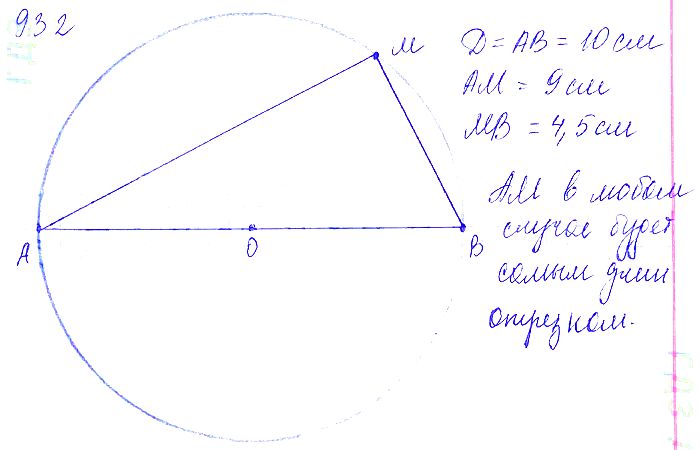 932
M
A
O
B
D = AB = 10 см
AM = 9 см
MB = 4,5 см
AM в любом
случае будет
самым длин
отрезком.